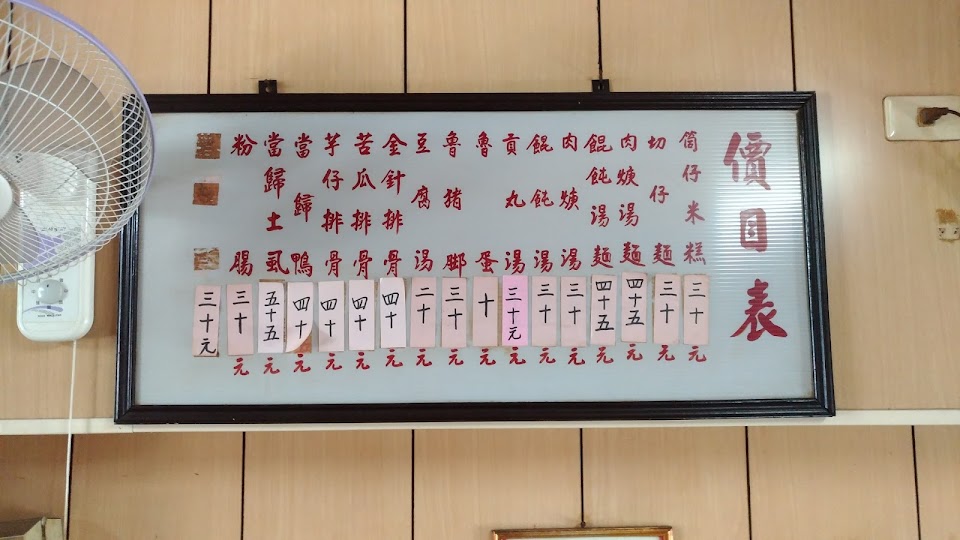 價目表
筒仔米糕三十元
切仔麵三十元
肉焿湯麵四十五元
餛飩湯麵四十五元
肉焿湯三十元
餛飩湯三十元
貢丸湯三十元
魯蛋十元
魯豬腳三十元
豆腐湯二十元
金針排骨四十元
苦瓜排骨四十元
芋仔排骨四十元
當歸鴨四十元
當歸土虱五十五元
粉腸三十元
三十元